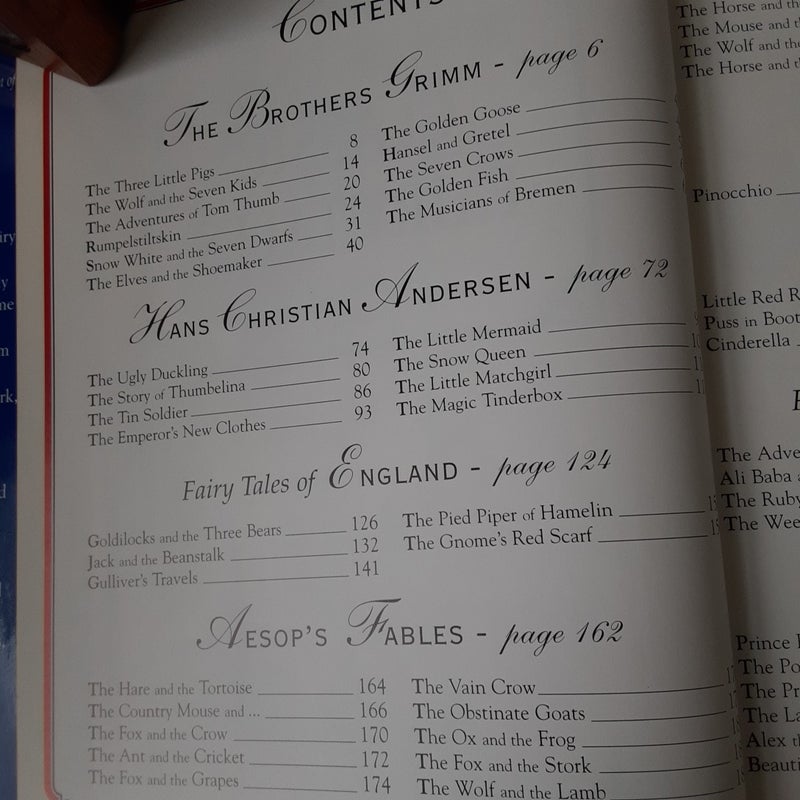 CONTENTS
THE BROTHERS GRIMM - page 6
The Three Little Pigs 8
The Wolf and the Seven Kids 14
The Adventures of Tom Thumb 20
Rumpelstiltskin 24
Snow White and the Seven Dwarfs 31
The Elves and the Shoemaker 40
The Golden Goose
Hansel and Gretel
The Seven Crows
The Golden Fish
The Musicians of Bremen
HANS CHRISTIAN ANDERSEN - page 72
The Ugly Duckling 74
The Story of Thumbelina 80
The Tin Soldier 86
The Emperor's New Clothes 93
The Little Mermaid
The Snow Queen
The Little Matchgirl
The Magic Tinderbox
Fairy Tales of ENGLAND - page 124
Goldilocks and the Three Bears 126
Jack and the Beanstalk 132
Gulliver's Travels 141
The Pied Piper of Hamelin
The Gnome's Red Scarf
AESOP'S FABLES - page 162
The Hare and the Tortoise 164
The Country Mouse and ... 166
The Fox and the Crow 170
The Ant and the Cricket 172
The Fox and the Grapes 174
The Vain Crow
The Obstinate Goats
The Ox and the Frog
The Fox and the Stork
The Wolf and the Lamb
The Horse and
The Mouse and
The Wolf and the
The Horse and
Pinocchio
Little Red
Puss in
Cinderella
The
Ali Baba
The Ruby
The Wee
Prince
The
The
The
Alex